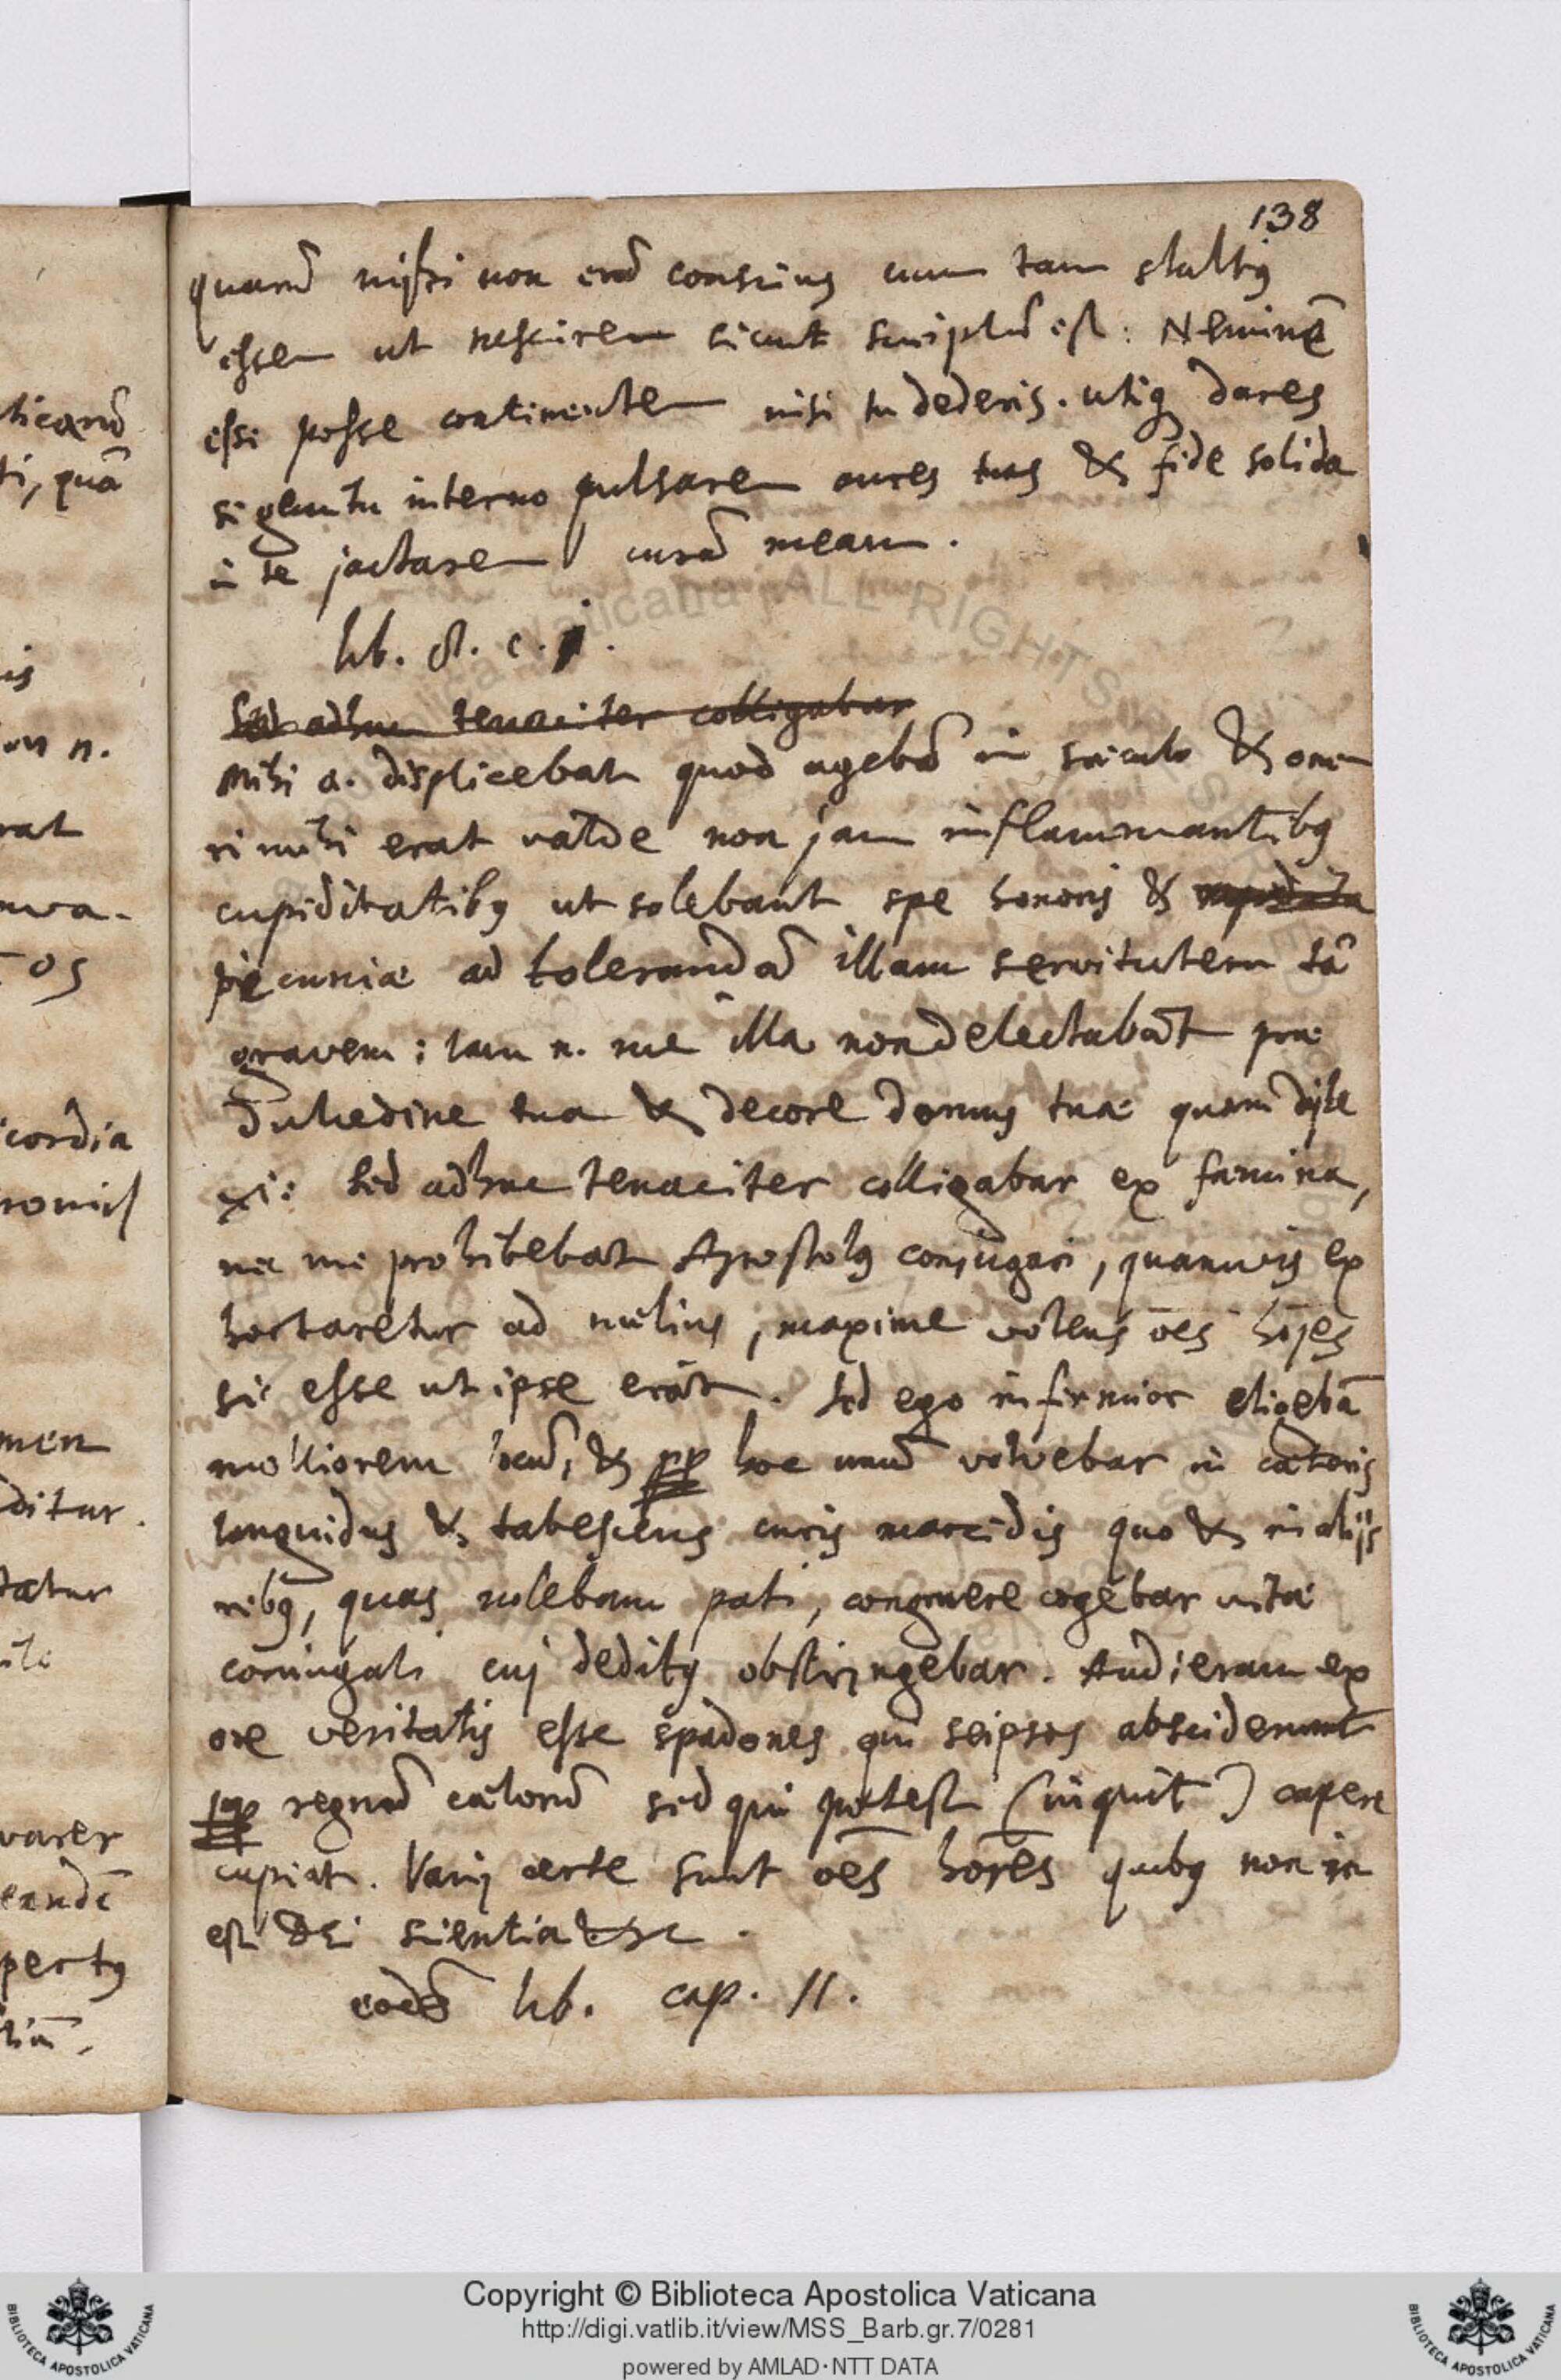 138
quarū mihi non erā conscius cum tam stultus
essem ut nescirem sicut scriptū est: Neminē
esse posse continentem nisi tu dederis. utiq dares
si gemitu interno pulsarem aures tuas & fide solida
in te jactarem curā meam.
lib. 8. c. 1.
Sed adhuc tenaciter colligabar
Mihi a. displicebat quod agebā in sæculo & one
ri mihi erat valde non jam inflammantibus
cupiditatibus ut solebant spe honoris &
pecuniæ ad tolerandā illam servitutem tā
gravem: Iam n. me illa non delectabāt præ
dulcedine tua & decore domus tuæ quam dile
xi: sed adhuc tenaciter colligabar ex fæmina,
nec me prohibebat Apostolus conjugari, quamvis ex
hortaretur ad melius, maxime volens oēs hoīes
sic esse ut ipse erat. Sed ego infirmior eligebā
molliorem locū, & pp hoc unū volvebar in cæteris
languidus & tabescens curis marcidis quo & in alijs
rebus, quas nolebam pati, congruere cogebar vitæ
coniugali cui deditus obstringebar. Audieram ex
ore veritatis esse spadones qui seipsos absciderunt
pp regnū cælorū sed qui potest (inquit) capere
capiat. Vani certe sunt oēs hoīes quibus non in
est Dei scientia &c.
eodē lib. cap. 11.
ticarū
ti, quā
is
on n.
rat
nva-
os
icordia
men
ditur.
tatur
varer
endē
pertus
Copyright © Biblioteca Apostolica Vaticana
http://digi.vatlib.it/view/MSS_Barb.gr.7/0281
powered by AMLAD·NTT DATA
BIBLIOTECA APOSTOLICA VATICANA
BIBLIOTECA APOSTOLICA VATICANA